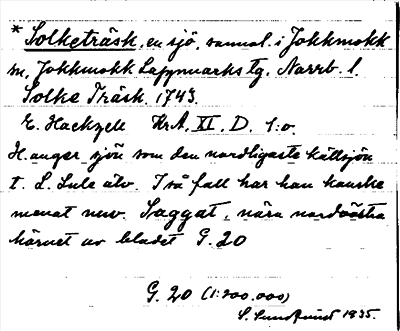 * Solketräsk, en sjö, samml. i Jokkmokk
sn, Jokkmokk Lappmarks tg. Norrb. l.
Solke Träsk 1743.
E. Hackzell KrA. XI. D. 1:o.
H. anger sjön som den nordligaste källsjön
t. L. Lule älv. I så fall har han kanske
menat nuv. Saggat, nära nordvästra
hörnet av bladet G. 20
G. 20 (1:200.000)
S. 1935.